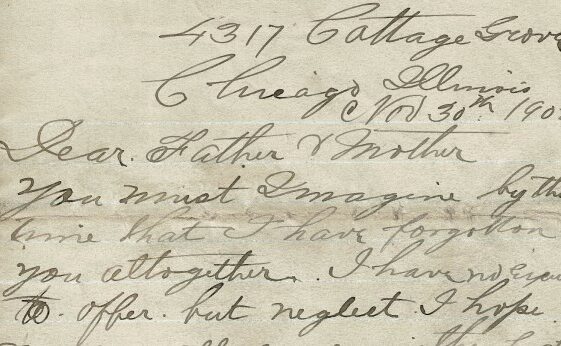 4317 Cottage Grove
Chicago Illinois
Nov 30th 190
Dear. Father & Mother
You must Imagine by th
time that I have forgotton
you altogether. I have no
to. offer. but neglect. I hope.